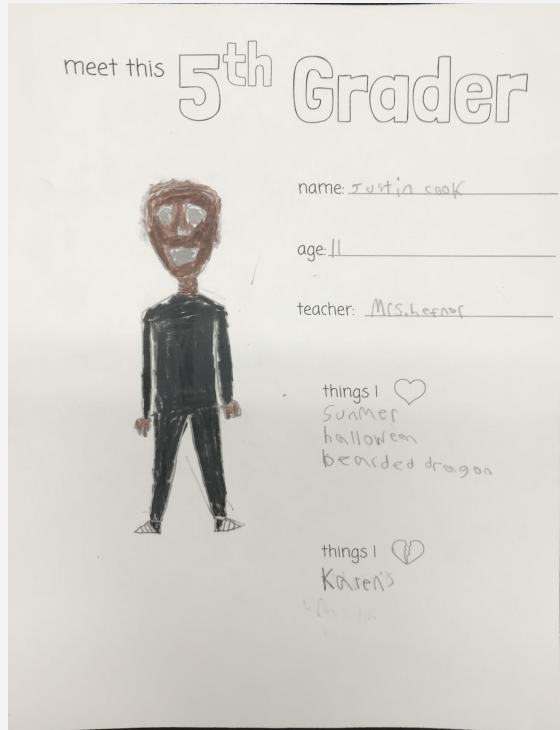 meet this 5th Grader
name: Justin cook
age: 11
teacher: Mrs. hefnor
things I
Sunmer
halloween
bearded dragon
things I
Karen's